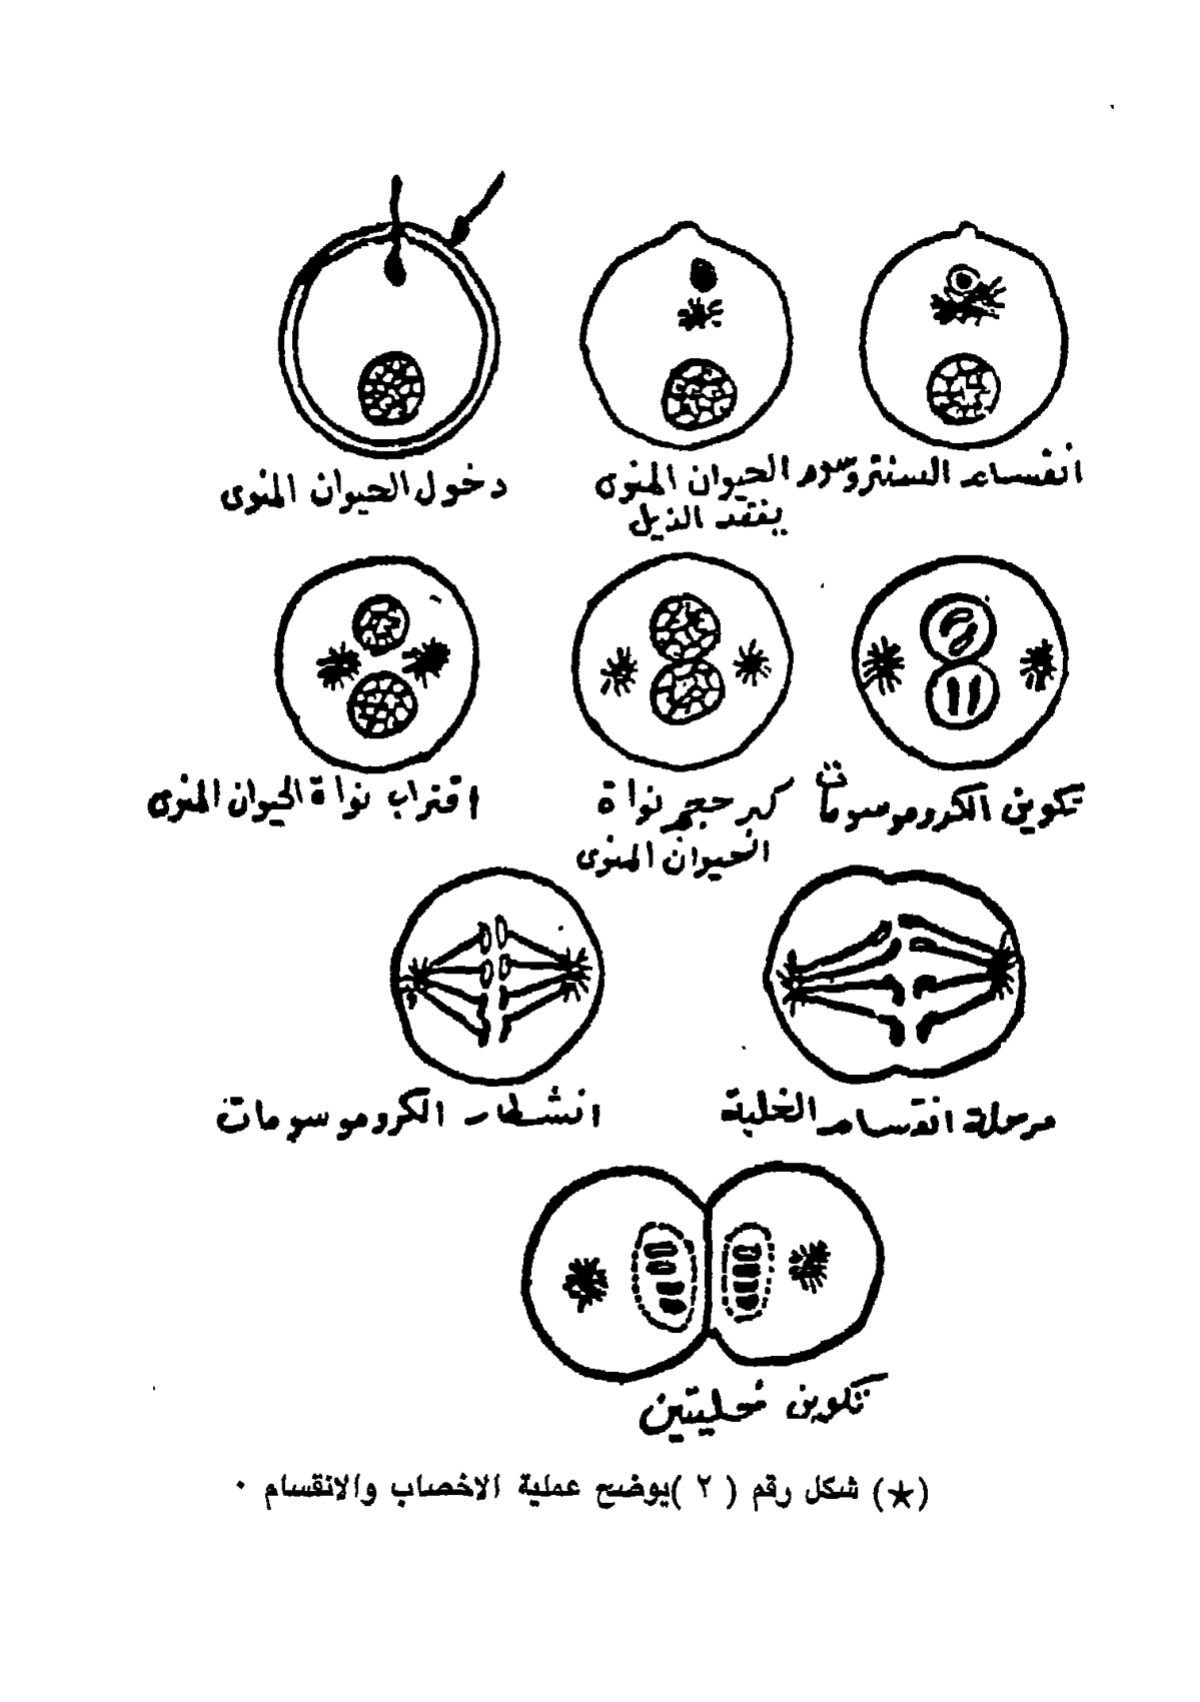 دخول الحيوان المنوى
الحيوان المنوى
يفقد الذيل
انقسام السنتروسوم
اقتراب نواة الحيوان المنوى
كبر حجم نواة
الحيوان المنوى
تكوين الكروموسومات
انشطار الكروموسومات
مرحلة انقسام الخلية
تكوين خليتين
(★) شكل رقم ( ٢ )يوضح عملية الاخصاب والانقسام ٠